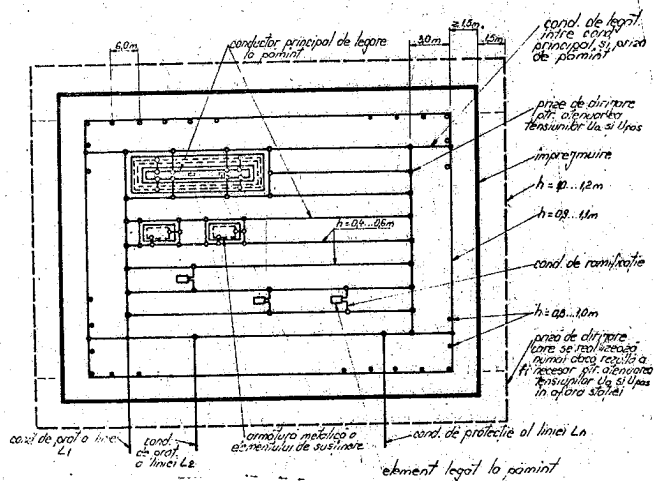 6,0m
conductor principal de legare
la pamint
3,0m
≥1,5m
1,5m
cond. de legat.
intre cond.
principal, si priza
de pamint
prize de dirijare
ptr. atenuarea
tensiunilor Ua si Upas
imprejmuire
h=1,0...1,2m
h=0,9...1,1m
h=0,4...0,6m
cond. de ramificatie
h=0,8...1,0m
priza de dirijare
care se realizeaza
numai daca rezulta a
fi necesar ptr. atenuarea
tensiunilor Ua si Upas
in afara statiei
cond de prot a liniei
L1
cond.
de prot.
a liniei L2
armatura metalica a
elementului de sustinere
cond. de protectie al liniei Ln
element legat la pamint